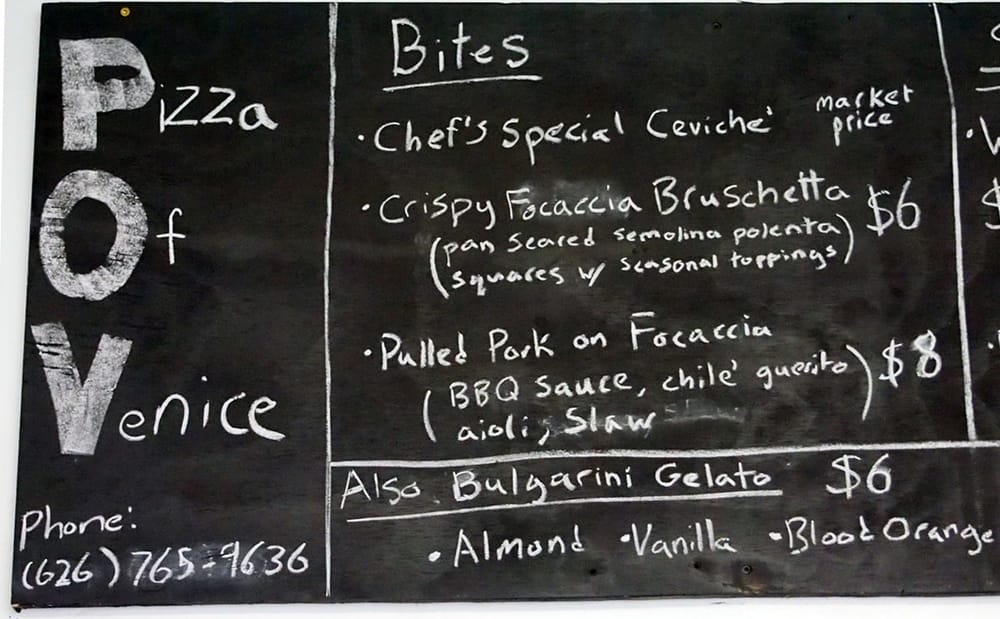 Pizza
Of
Venice
Phone:
(626) 765-9636
Bites
• Chef's Special Ceviche' market price
• Crispy Focaccia Bruschetta $6
(pan seared semolina polenta
squares w/ seasonal toppings)
• Pulled Pork on Focaccia
(BBQ Sauce, chile' guerito) $8
aioli, Slaw
Also Bulgarini Gelato $6
• Almond • Vanilla • Blood Orange